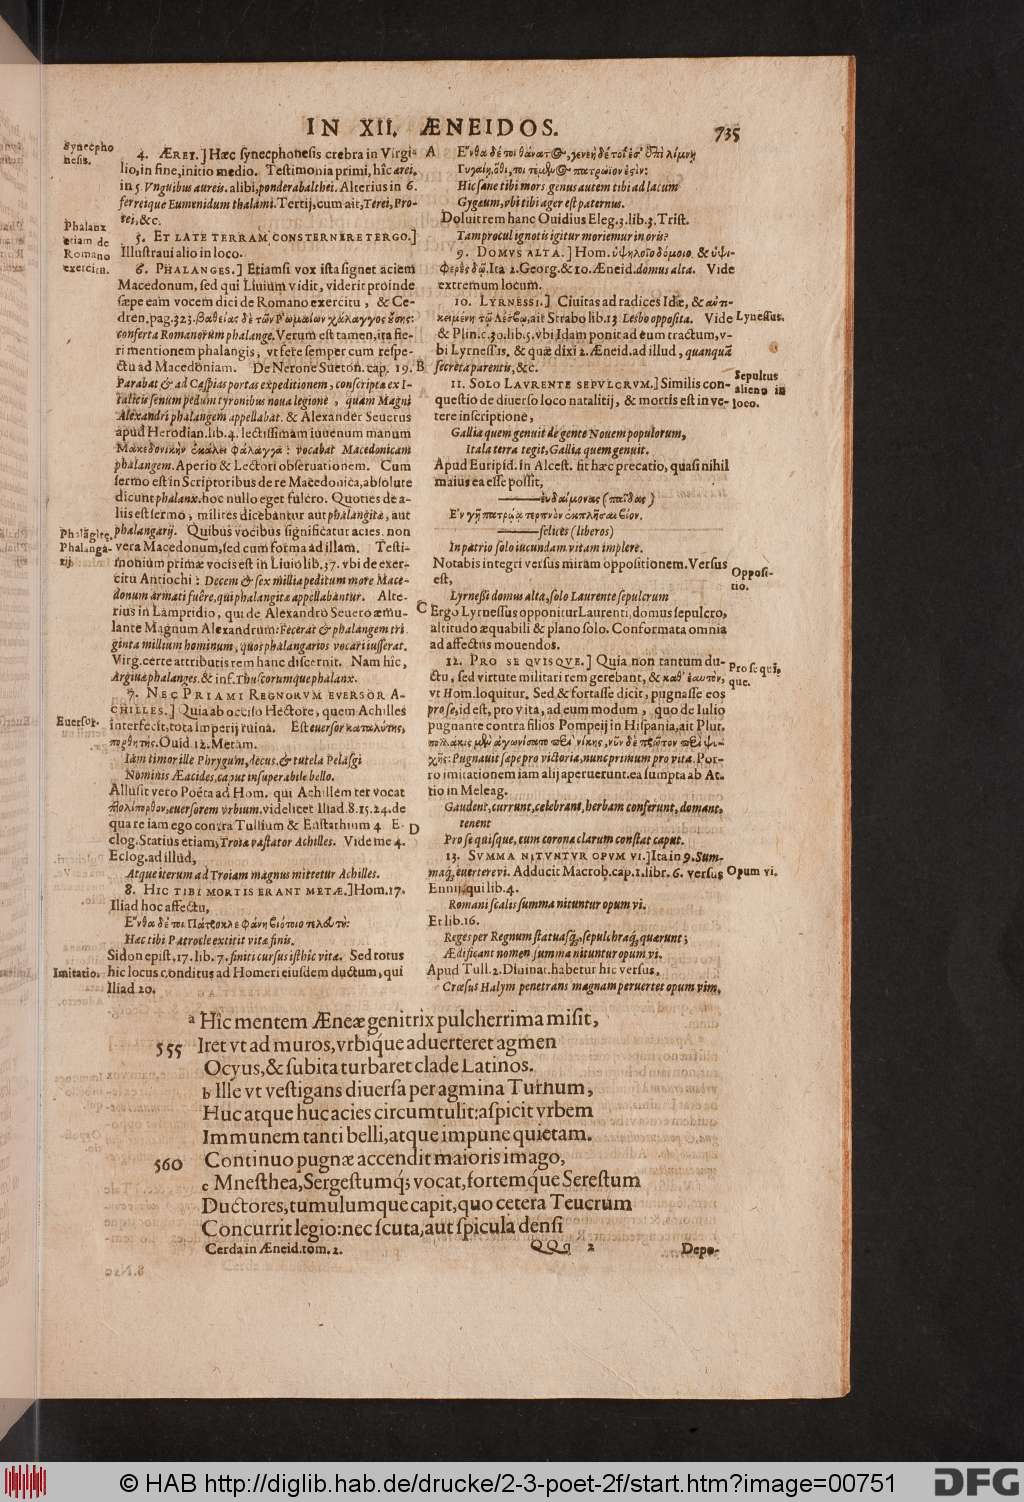 IN XII. ÆNEIDOS. 735
Synecpho
nesis.
4. ÆREI.] Hæc synecphonesis crebra in Virgi-
lio, in fine, initio medio. Testimonia primi, hîc arei,
in 5. Vnguibus aureis. alibi, ponderabalthei. Alterius in 6.
ferreique Eumenidum thalami. Tertij, cum ait, Terei, Pro-
tei, &c.
5. ET LATE TERRAM CONSTERNERE TERGO.]
Illustraui alio in loco.
Phalanx
etiam de
Romano
exercitu.
6. PHALANGES.] Etiamsi vox ista signet aciem
Macedonum, sed qui Liuium vidit, viderit proinde
sæpe eam vocem dici de Romano exercitu, & Ce-
dren, pag. 323. βαθείας δὲ τῶν Ρωμαίων φάλαγγος ὔσης:
conferta Romanorum phalange. Verum est tamen, ita fie-
ri mentionem phalangis, vt fere semper cum respe-
ctu ad Macedoniam. De Nerone Sueton. cap. 19.
Parabat & ad Caspias portas expeditionem, conscripta ex I-
talicis senum pedum tyronibus noua legione, quam Magni
Alexandri phalangem appellabat. & Alexander Seuerus
apud Herodian. lib. 4. lectissimam iuuenum manum
Μακεδονικὴν ἐκάλει φάλαγγα: vocabat Macedonicam
phalangem. Aperio & Lectori obseruationem. Cum
sermo est in Scriptoribus de re Macedonica, absolute
dicunt phalanx. hoc nullo eget fulcro. Quoties de a-
liis est sermo, milites dicebantur aut phalangitæ, aut
phalangarij. Quibus vocibus significatur acies. non
vera Macedonum, sed cum forma ad illam. Testi-
monium primæ vocis est in Liuio lib. 37. vbi de exer-
citu Antiochi: Decem & sex millia peditum more Mace-
donum armati fuêre, qui phalangitæ appellabantur. Alte-
rius in Lampridio, qui de Alexandro Seuero æmu-
lante Magnum Alexandrum: Fecerat & phalangem tri
ginta millium hominum, quos phalangarios vocari iusserat.
Virg. certe attributis rem hanc discernit. Nam hic,
Argiuæ phalanges. & inf. Thuscorumque phalanx.
Phalāgitę,
Phalanga-
rij.
7. NEC PRIAMI REGNORVM EVERSOR A-
CHILLES.] Quia ab occiso Hectore, quem Achilles
interfecit, tota Imperij ruina. Est euersor καταλύτης,
πορθητης. Ouid. 12. Metam.
Euersor.
Iam timor ille Phrygum, decus, & tutela Pelasgi
Nominis Æacides, caput insuperabile bello.
Allusit vero Poëta ad Hom. qui Achillem ter vocat
πολίπορθον, euersorem vrbium. videlicet Iliad. 8. 15. 24. de
qua re iam ego contra Tullium & Eustathium 4 E-
clog. Statius etiam, Troiæ vastator Achilles. Vide me 4.
Eclog. ad illud,
Atque iterum ad Troiam magnus mittetur Achilles.
8. HIC TIBI MORTIS ERANT METÆ.] Hom. 17.
Iliad hoc affectu,
Ε῎νθα δέ τοι Πάτροκλε φάνη βιότοιο τελευτὴ:
Hac tibi Patrocle extitit vitæ finis.
Sidon epist, 17. lib. 7. finiti cursus isthic vitæ. Sed totus
hic locus conditus ad Homeri eiusdem ductum, qui
Iliad 20.
Imitatio.
A
B
C
D
Ε῎νθα δέ τοι θάνατος, γενεὴ δέ τοι ἐσ' ἐπὶ λίμνῃ
Γυγαίη, ὅθι, τοι τεμενος πατρώιον ἐςὶν:
Hic sane tibi mors genus autem tibi ad lacum
Gygæum, vbi tibi ager est paternus.
Doluit rem hanc Ouidius Eleg. 3. lib. 3. Trist.
Tam procul ignotis igitur moriemur in oris?
9. DOMVS ALTA.] Hom. ὑψηλοῖο δόμοιο. & ὑψι-
φερὲς δῶ. Ita 2. Georg. & 10. Æneid. domus alta. Vide
extremum locum.
10. LYRNESSI.] Ciuitas ad radices Idæ, & ἀντι-
κειμένη τῷ Λέσβῳ, ait Strabo lib. 13 Lesbo opposita. Vide
& Plin. c. 30. lib. 5. vbi Idam ponit ad eum tractum, v-
bi Lyrnessus. & quæ dixi 2. Æneid. ad illud, quanquã
secreta parentis, &c.
Lyrnessus.
11. SOLO LAVRENTE SEPVLCRVM.] Similis con-
questio de diuerso loco natalitij, & mortis est in ve-
tere inscriptione,
Sepultus
alieno in
loco.
Gallia quem genuit de gente Nouem populorum,
Itala terra tegit, Gallia quem genuit.
Apud Euripid. in Alcest. sit hæc precatio, quasi nihil
maius ea esse possit,
——ἐυδαίμονας (παῖδας)
Εν γῇ πατρῴᾳ τερπνὸν ἐκπλῆσαι βίον.
——felices (liberos)
In patrio solo iucundam vitam implere.
Notabis integri versus miram oppositionem. Versus
est,
Opposi-
tio.
Lyrnessi domus alta, solo Laurente sepulcrum
Ergo Lyrnessus opponitur Laurenti, domus sepulcro,
altitudo æquabili & plano solo. Conformata omnia
ad affectus mouendos.
12. PRO SE QVISQVE.] Quia non tantum du-
ctu, sed virtute militari rem gerebant, & καθ' ἑαυτὸν,
vt Hom. loquitur. Sed & fortasse dicit, pugnasse eos
pro se, id est, pro vita, ad eum modum, quo de Iulio
pugnante contra filios Pompeij in Hispania, ait Plut.
πολλάκις μὲν ἀγωνίσαιτο περὶ νίκης, νῦν δὲ πρῶτον περὶ ψυ-
χῆς: Pugnauit sæpe pro victoria, nunc primum pro vita. Por-
ro imitationem iam alij aperuerunt. ea sumpta ab At-
tio in Meleag.
Pro se qui-
que.
Gaudent, currunt, celebrant, herbam conferunt, domant,
tenent
Pro se quisque, cum corona clarum constat caput.
13. SVMMA NITVNTVR OPVM VI.] Ita in 9. Sum-
maq́ue euertere vi. Adducit Macrob. cap. 1. libr. 6. versus
Ennij, qui lib. 4.
Opum vi.
Romani scalis summa nituntur opum vi.
Et lib. 16.
Reges per Regnum statuasq́ue, sepulchraq́ue, quærunt;
Ædificant nomen summa nituntur opum vi.
Apud Tull. 2. Diuinat. habetur hic versus,
Crœsus Halym penetrans magnam peruertet opum vim.
a Hîc mentem Æneæ genitrix pulcherrima misit,
555 Iret vt ad muros, vrbique aduerteret agmen
Ocyus, & subita turbaret clade Latinos.
b Ille vt vestigans diuersa per agmina Turnum,
Huc atque huc acies circumtulit: aspicit vrbem
Immunem tanti belli, atque impune quietam.
560 Continuo pugnæ accendit maioris imago,
c Mnesthea, Sergestumq́; vocat, fortemq́ue Serestum
Ductores, tumulumque capit, quo cetera Teucrum
Concurrit legio: nec scuta, aut spicula densi
Cerda in Æneid. tom. 2. QQq 2 Depo-
© HAB http://diglib.hab.de/drucke/2-3-poet-2f/start.htm?image=00751 DFG